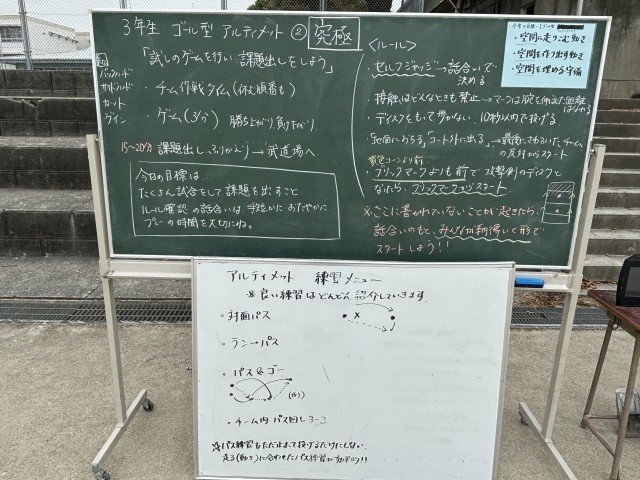 3年生 ゴール型 アルティメット ② 究極
「試しのゲームを行い 課題出しをしよう」
バックハンド
サイドハンド
カット
ゲイン
・チーム作戦タイム(休む順番も)
・ゲーム(3分) 勝ち上がり、負け下がり
15~20分 課題出し、ふりかえり → 武道場へ
今日の目標は
たくさん試合をして課題を出すこと
ルール確認の話合いは手短かに おだやかに
プレーの時間を大切にね。
<ルール>
・セルフジャッジ→話合いで
決める
・接触はどんなときも禁止→マークは腕を伸ばした距離
はなれる
・ディスクをもって歩かない、10秒以内で投げる
・「地面におちる」「コート外に出る」→最後にさわっていたチーム
の反対からスタート
黄色コーンより前
・ブリックマークよりも前で攻撃側のディスクと
なったら、ブリックマークからスタート
※ここに書かれていないことが起きたら、
話合いのもと、みんなが納得いく形で
スタートしよう!!
・空間に走りこむ動き
・空間を作り出す動き
・空間を埋める守備
アルティメット 練習メニュー
※良い練習はどんどん紹介していきます
・対面パス
・ラン→パス
・パス&ゴー
(例)
・チーム内 パス回し 3-3
※パス練習もただ止まって投げるだけにしない。
走る(動き)に合わせたパス練習が効果的!!